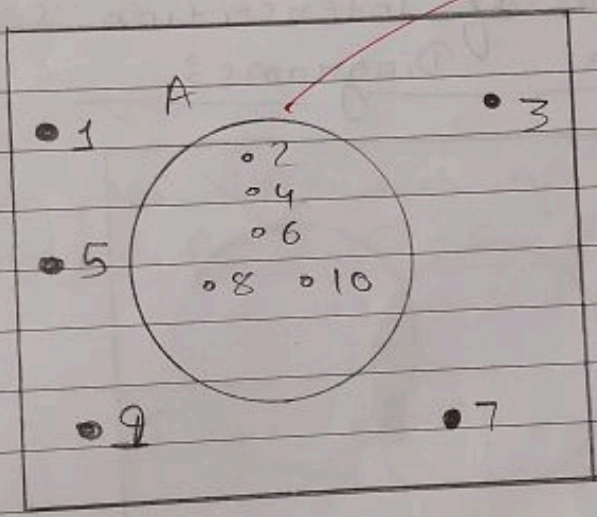 A
1
3
2
4
6
5
8 10
9
7